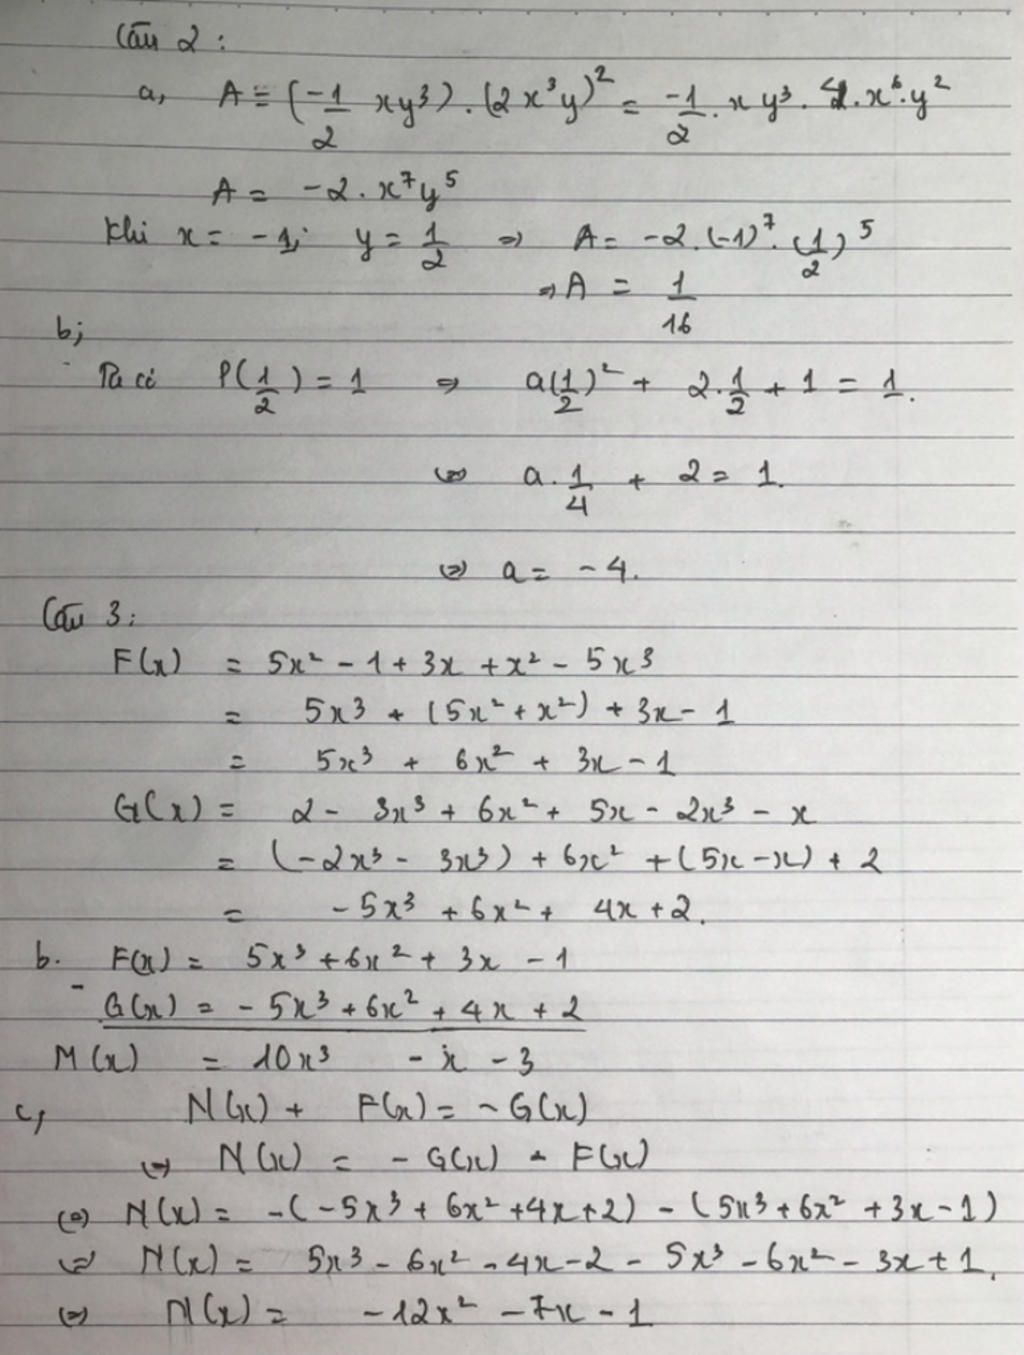 Câu 2 :
a, A = (-1/2 xy³) . (2x³y)² = -1/2 . xy³ . 4 . x⁶ . y²
A = -2 . x⁷y⁵
Khi x = -1; y = 1/2 => A = -2 . (-1)⁷ . (1/2)⁵
=> A = 1/16
b;
Ta có P(1/2) = 1 => a(1/2)² + 2 . 1/2 + 1 = 1.
<=> a . 1/4 + 2 = 1.
<=> a = -4.
Câu 3 :
F(x) = 5x² - 1 + 3x + x² - 5x³
= 5x³ + (5x² + x²) + 3x - 1
= 5x³ + 6x² + 3x - 1
G(x) = 2 - 3x³ + 6x² + 5x - 2x³ - x
= (-2x³ - 3x³) + 6x² + (5x - x) + 2
= -5x³ + 6x² + 4x + 2.
b. F(x) = 5x³ + 6x² + 3x - 1
- G(x) = -5x³ + 6x² + 4x + 2
M(x) = 10x³ - x - 3
c, N(x) + F(x) = -G(x)
<=> N(x) = -G(x) - F(x)
<=> N(x) = -(-5x³ + 6x² + 4x + 2) - (5x³ + 6x² + 3x - 1)
<=> N(x) = 5x³ - 6x² - 4x - 2 - 5x³ - 6x² - 3x + 1.
<=> N(x) = -12x² - 7x - 1